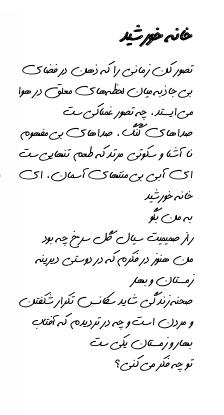 خانه خورشید
تصور کن زمانی را که ذهن در فضای
بی جاذبه میان لحظه‌های معلق در هوا
می‌ایستد. چه تصور غمناکی ست
صداهای گنگ. صداهای بی مفهوم
نا آشنا و سکوتی مرتد که طعم تنهایی ست
ای آبی بی منتهای آسمان. ای
خانه خورشید
به من بگو
راز صمیمیت سیال گل سرخ چه بود
من هنوز در فکرم که در دوستی دیرینه
زمستان و بهار
صحنه زندگی شاید سکانس تکرار شکفتن
و مردن است و چه در تردیدم که آفتاب
بهار و زمستان یکی ست
تو چه فکر می کنی؟